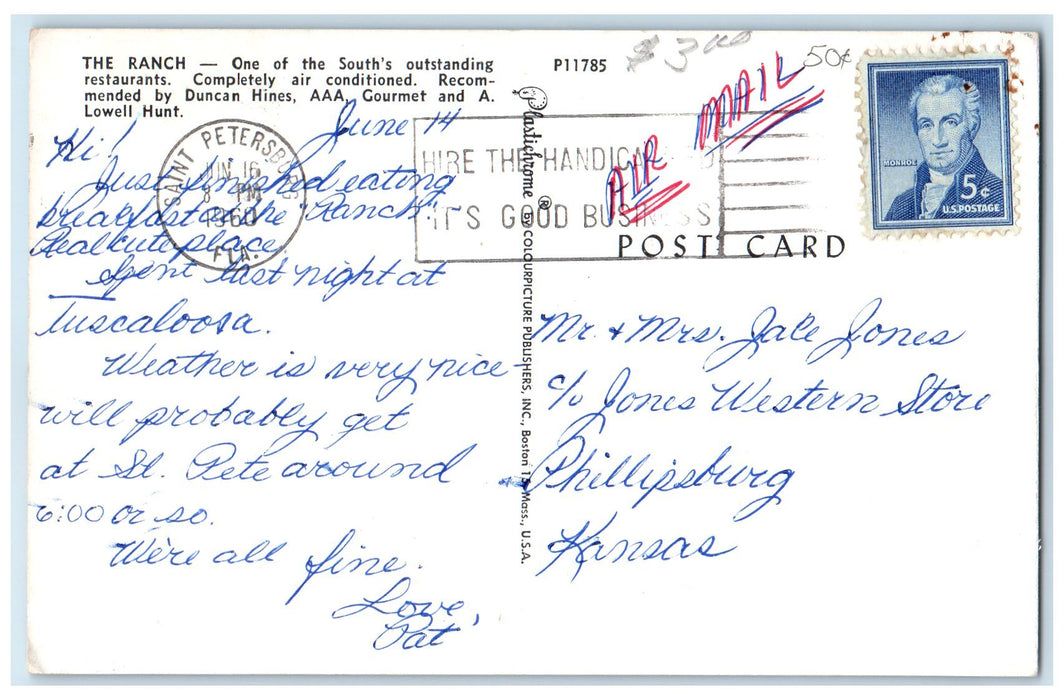 THE RANCH — One of the South's outstanding
restaurants. Completely air conditioned. Recom-
mended by Duncan Hines, AAA, Gourmet and A.
Lowell Hunt.
P11785
$ 3.00
50¢
AIR MAIL
MONROE
5¢
U.S. POSTAGE
SAINT PETERSBURG
JUN 16
8 PM
1960
FLA.
HIRE THE HANDICAPPED
IT'S GOOD BUSINESS
POST CARD
Plastichrome ® by COLOURPICTURE PUBLISHERS, INC., Boston 15, Mass., U.S.A.
June 14
Hi!
Just finished eating
breakfast at the "Ranch" -
Real cute place
Spent last night at
Tuscaloosa.
Weather is very nice -
will probably get
at St. Pete around
6:00 or so.
We're all fine.
Love,
Pat
Mr. + Mrs. Jale Jones
c/o Jones Western Store
Phillipsburg
Kansas